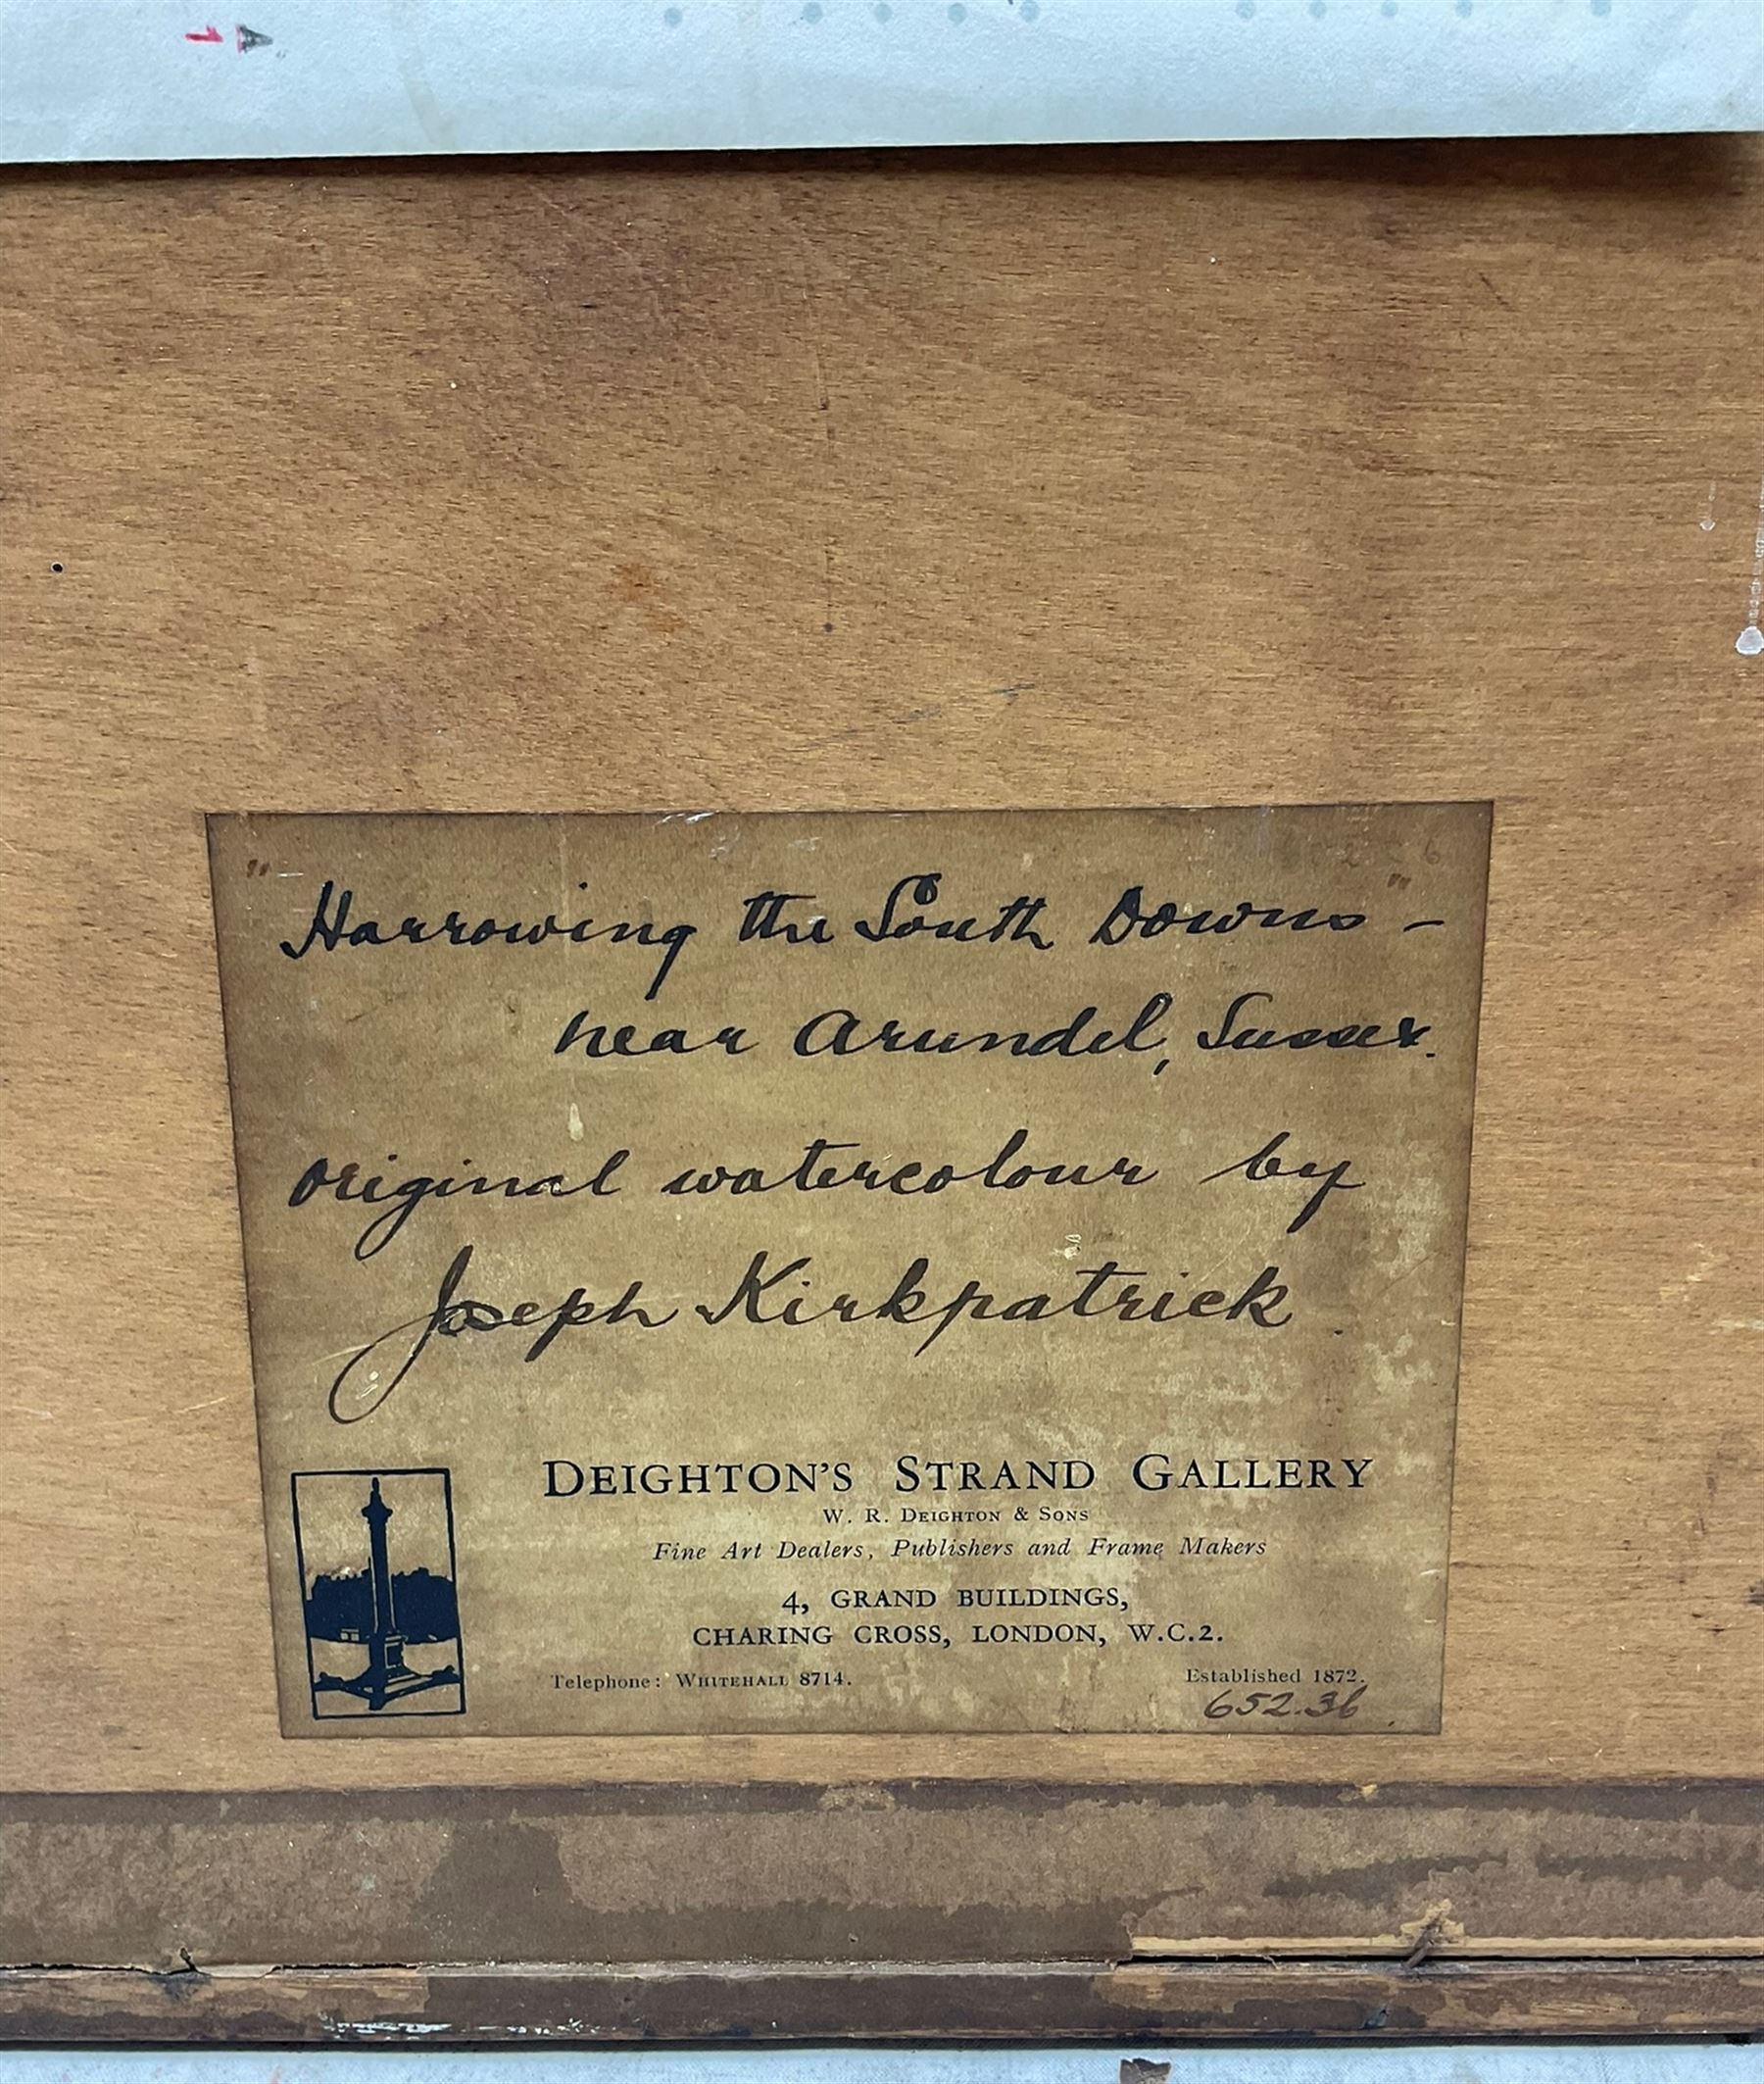 "Harrowing the South Downs" -
near Arundel, Sussex.
original watercolour by
Joseph Kirkpatrick.
DEIGHTON'S STRAND GALLERY
W. R. DEIGHTON & SONS
Fine Art Dealers, Publishers and Frame Makers
4, GRAND BUILDINGS,
CHARING CROSS, LONDON, W.C.2.
Telephone: WHITEHALL 8714. Established 1872.
652.36